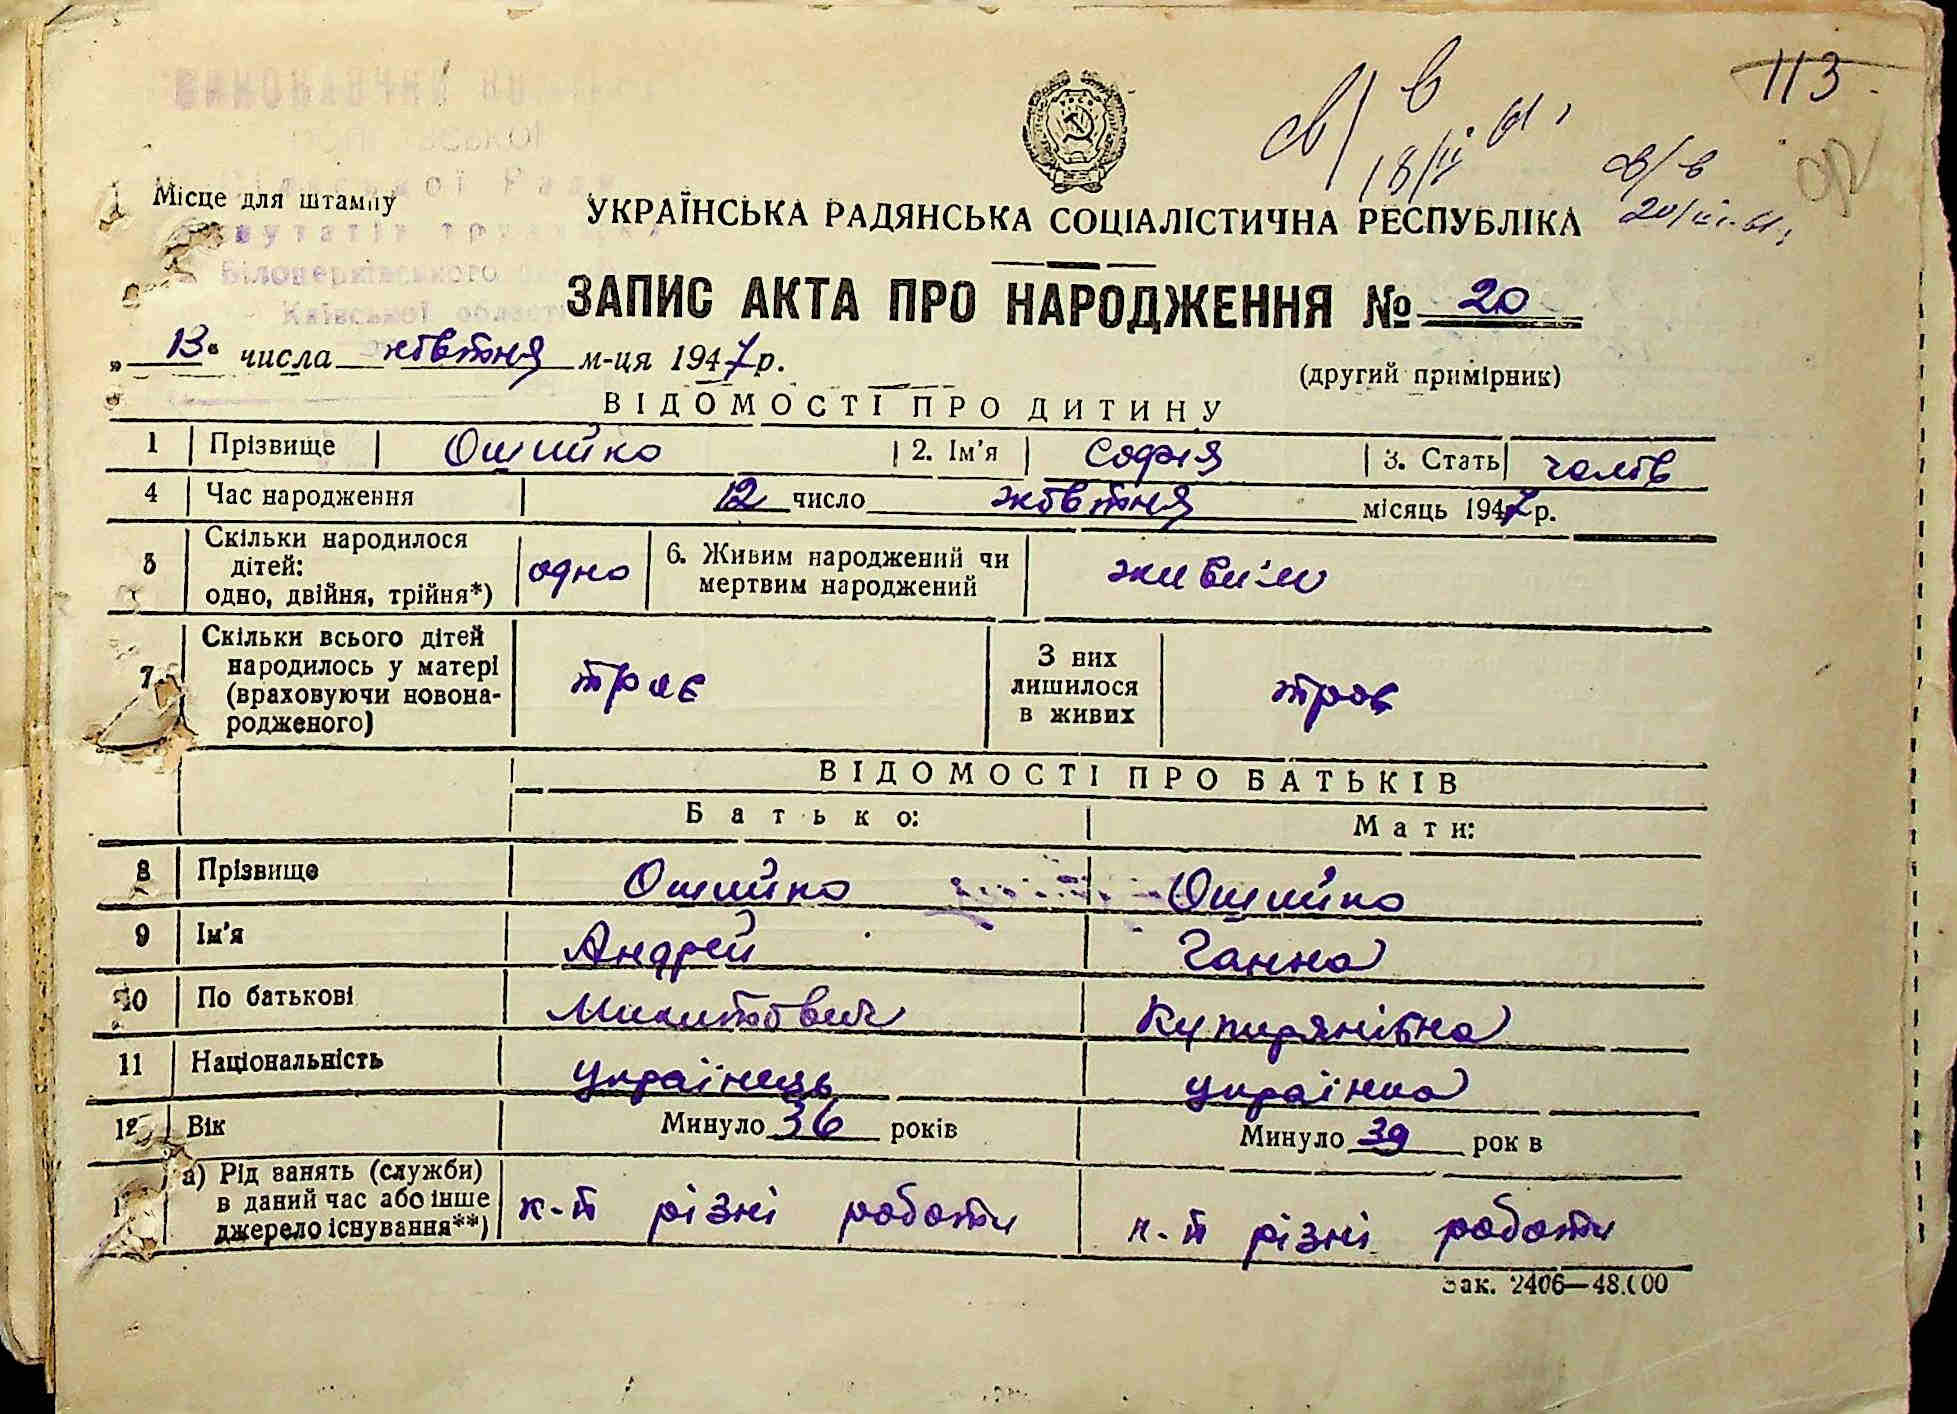 113
св/в
18/ІІ. 61,
св/в
20/ІІІ-61,
Місце для штампу
Білоцерківського
Київської області
УКРАЇНСЬКА РАДЯНСЬКА СОЦІАЛІСТИЧНА РЕСПУБЛІКА
ЗАПИС АКТА ПРО НАРОДЖЕННЯ № 20
„ 13 " числа жовтня м-ця 1947 р.
(другий примірник)
ВІДОМОСТІ ПРО ДИТИНУ
1 Прізвище Ошийко 2. Ім'я Софія 3. Стать чолов
4 Час народження 12 число жовтня місяць 1947 р.
5 Скільки народилося дітей: одно, двійня, трійня*) одно 6. Живим народжений чи мертвим народжений живим
7 Скільки всього дітей народилось у матері (враховуючи новонародженого) троє З них лишилося в живих троє
ВІДОМОСТІ ПРО БАТЬКІВ
Батько: Мати:
8 Прізвище Ошийко Ошийко
9 Ім'я Андрей Ганна
10 По батькові Микитович Купирянівна
11 Національність українець українка
12 Вік Минуло 36 років Минуло 39 рок в
а) Рід занять (служби) в даний час або інше джерело існування**) к-п різні роботи к-п різні роботи
Зак. 2406—48.000